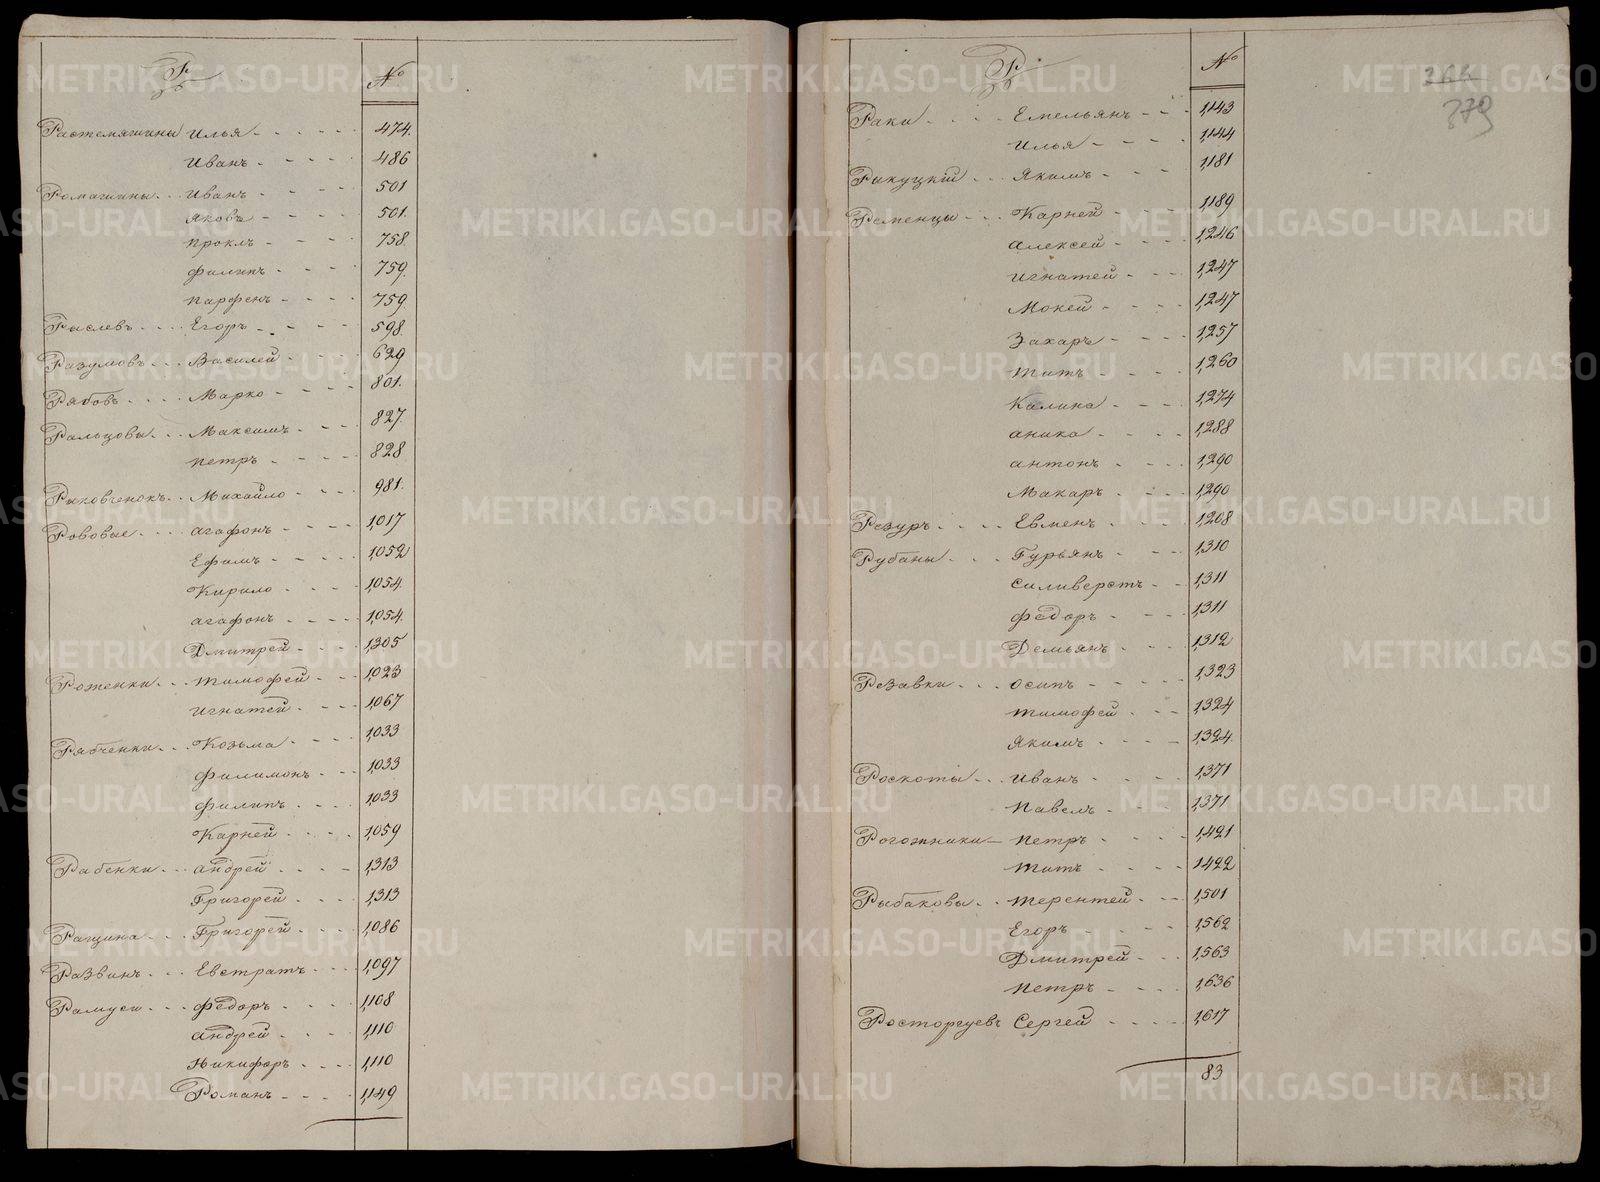 Р №
Растемяшины Илья 474.
Иванъ 486
Ромашины Иванъ 501
Яковъ 501.
Проклъ 758.
Филипъ 759.
Парфенъ 759
Рыслевъ Егоръ 598.
Разумовъ Василей 629
Рябовъ Марко 801.
Ральцовы Максимъ 827.
Петръ 828
Рыковченокъ Михайло 981.
Рововые Агафонъ 1,017
Ефимъ 1,052
Кирило 1,054.
Агафонъ 1,054.
Дмитрей 1,305
Роженки Тимофей 1,023
Игнатей 1,067
Рябченки Козьма 1,033
Филимонъ 1,033
Филипъ 1,033
Карней 1,059
Рабенки Андрей 1,313
Григорей 1,313
Ращина Григорей 1,086
Развинъ Евстратъ 1,097
Рамуси Федоръ 1,108
Андрей 1,110
Никифоръ 1,110
Романъ 1,149
Р №
364
379
Раки Емельянъ 1,143
Илья 1,144
Рыкуцкій Якимъ 1,181
Ременцы Карней 1,189
Алексей 1,246
Игнатей 1,247
Мокей 1,247
Захаръ 1,257
Титъ 1,260
Калина 1,274
Аника 1,288
Антонъ 1,290
Макаръ 1,290
Резуръ Евменъ 1,208
Рубаны Гурьянъ 1,310
Силиверстъ 1,311
Федоръ 1,311
Демьянъ 1,312
Резавки Осипъ 1,323
Тимофей 1,324
Якимъ 1,324.
Роскоты Иванъ 1,371
Павелъ 1,371
Рогожники Петръ 1,421
Титъ 1,422
Рыбаковы Терентей 1,501
Егоръ 1,562
Дмитрей 1,563
Петръ 1,636
Росторгуевъ Сергей 1,617
83
METRIKI.GASO-URAL.RU